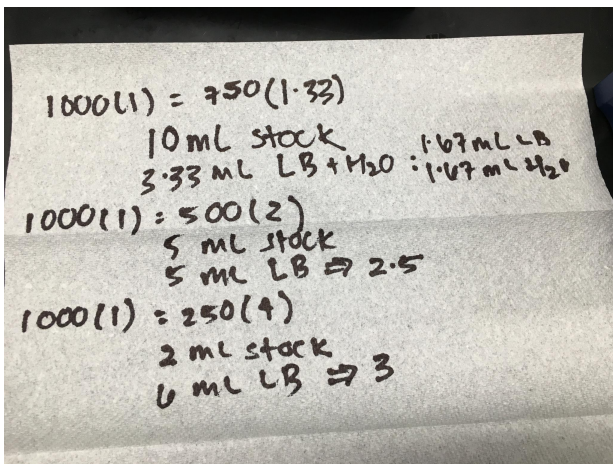 1000(1) = 750(1.33)
10 mL stock
3.33 mL LB + H2O : 1.67 mL LB
1.67 mL H2O
1000(1) = 500(2)
5 mL stock
5 mL LB ⇒ 2.5
1000(1) = 250(4)
2 mL stock
6 mL LB ⇒ 3